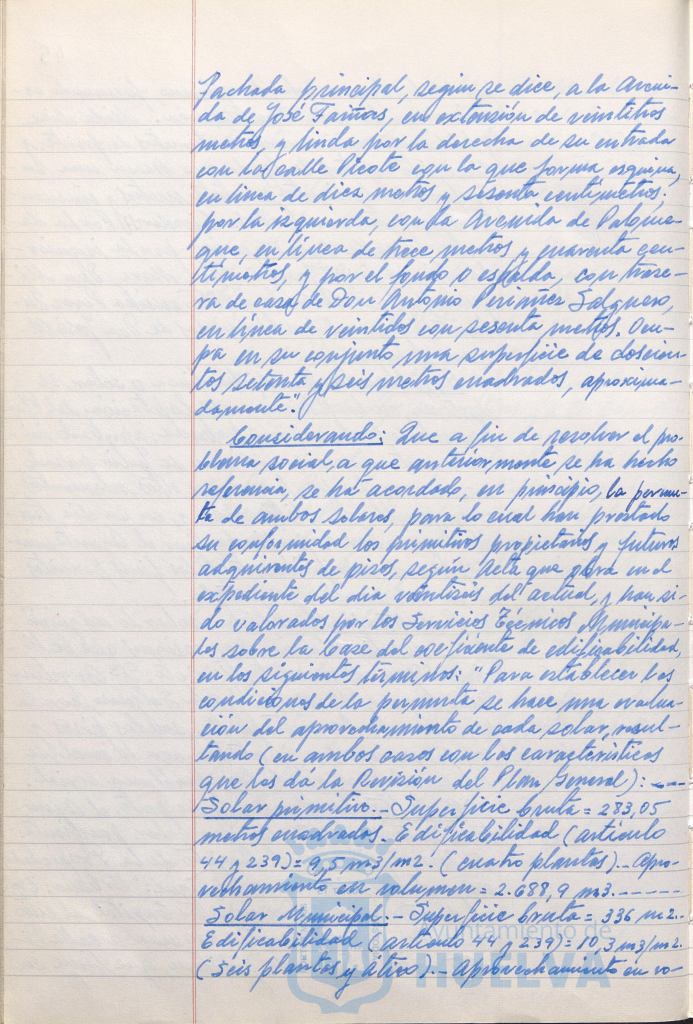 Fachada principal, según se dice, a la Aveni-
da de José Fariñas, en extensión de veintitrés
metros, y linda por la derecha de su entrada
con la calle Picote con la que forma esquina,
en línea de diez metros y sesenta centímetros;
por la izquierda, con la Avenida de Palome-
que, en línea de trece metros y cuarenta cen-
tímetros, y por el fondo o espalda, con trase-
ra de casa de Don Antonio Periáñez Salguero,
en línea de veintidos con sesenta metros. Ocu-
pa en su conjunto una superficie de doscien-
tos setenta y seis metros cuadrados, aproxima-
damente".
Considerando: Que a fin de resolver el pro-
blema social, a que anteriormente se ha hecho
referencia, se ha acordado, en principio, la permu-
ta de ambos solares, para lo cual han prestado
su conformidad los primitivos propietarios y futuros
adquirentes de pisos, según acta que obra en el
expediente del dia veintiseis del actual, y han si-
do valorados por los Servicios Técnicos Municipa-
les sobre la base del coeficiente de edificabilidad,
en los siguientes términos: "Para establecer las
condiciones de la permuta se hace una evalua-
ción del aprovechamiento de cada solar, resul-
tando (en ambos casos con las características
que les dá la Revisión del Plan General): ---
Solar primitivo.- Superficie bruta = 283,05
metros cuadrados. Edificabilidad (artículo
44 y 239) = 9,5 m3/m2. (cuatro plantas).- Apro-
vechamiento en volumen = 2.688,9 m3.------
Solar Municipal.- Superficie bruta = 336 m2.-
Edificabilidad (artículo 44 y 239) = 10,3 m3/m2.
(Seis plantas y ático).- Aprovechamiento en vo-
Ayuntamiento de
HUELVA